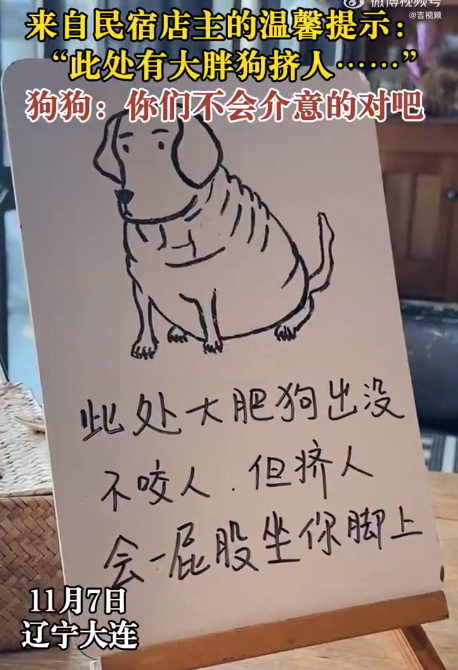 微博视频号
@吉视频
来自民宿店主的温馨提示：
“此处有大胖狗挤人……”
狗狗：你们不会介意的对吧
此处大肥狗出没
不咬人．但挤人
会一屁股坐你脚上
11月7日
辽宁大连